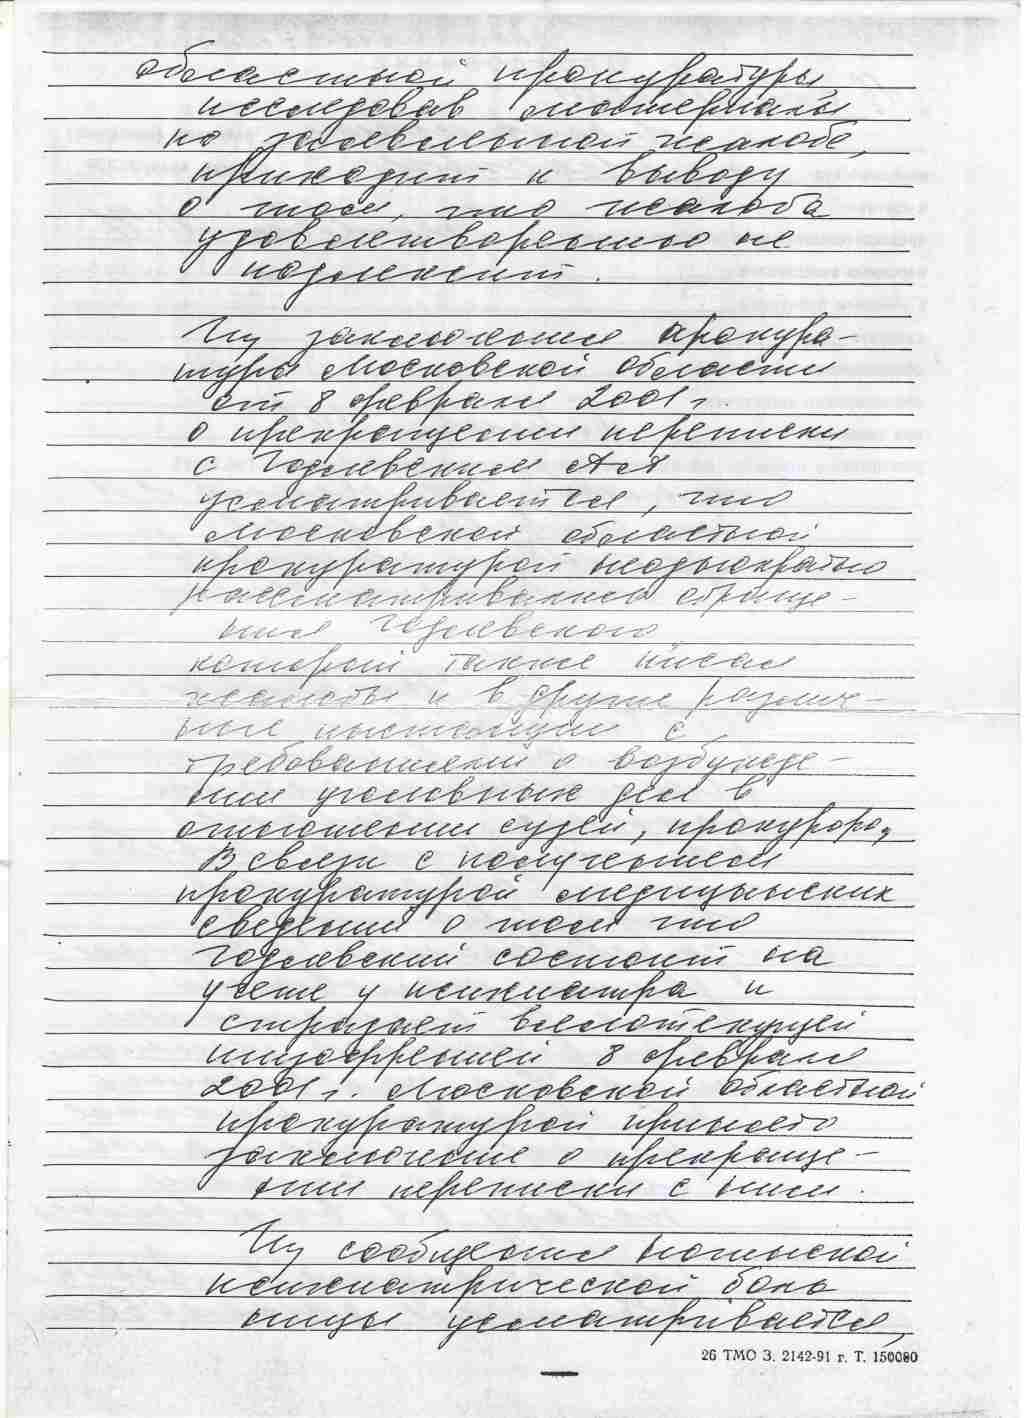 областной прокуратуры
исследовав материалы
по заявленной жалобе,
приходит к выводу
о том, что жалоба
удовлетворению не
подлежит.
Из заключения прокура-
туры Московской области
от 8 февраля 2001 г.
о прекращении переписки
с Годлевским А А
усматривается, что
Московской областной
прокуратурой неоднократно
рассматривались обраще-
ния Годлевского
который также писал
жалобы и в другие различ-
ные инстанции с
требованиями о возбужде-
нии уголовных дел в
отношении судей, прокуроров,
В связи с получением
прокуратурой медицинских
сведений о том что
Годлевский состоит на
учете у психиатра и
страдает вялотекущей
шизофренией 8 февраля
2001 г. Московской областной
прокуратурой принято
заключение о прекраще-
нии переписки с ним.
Из сообщения
психиатрической боль
ницы усматривается,
26 ТМО З. 2142-91 г. Т. 150080